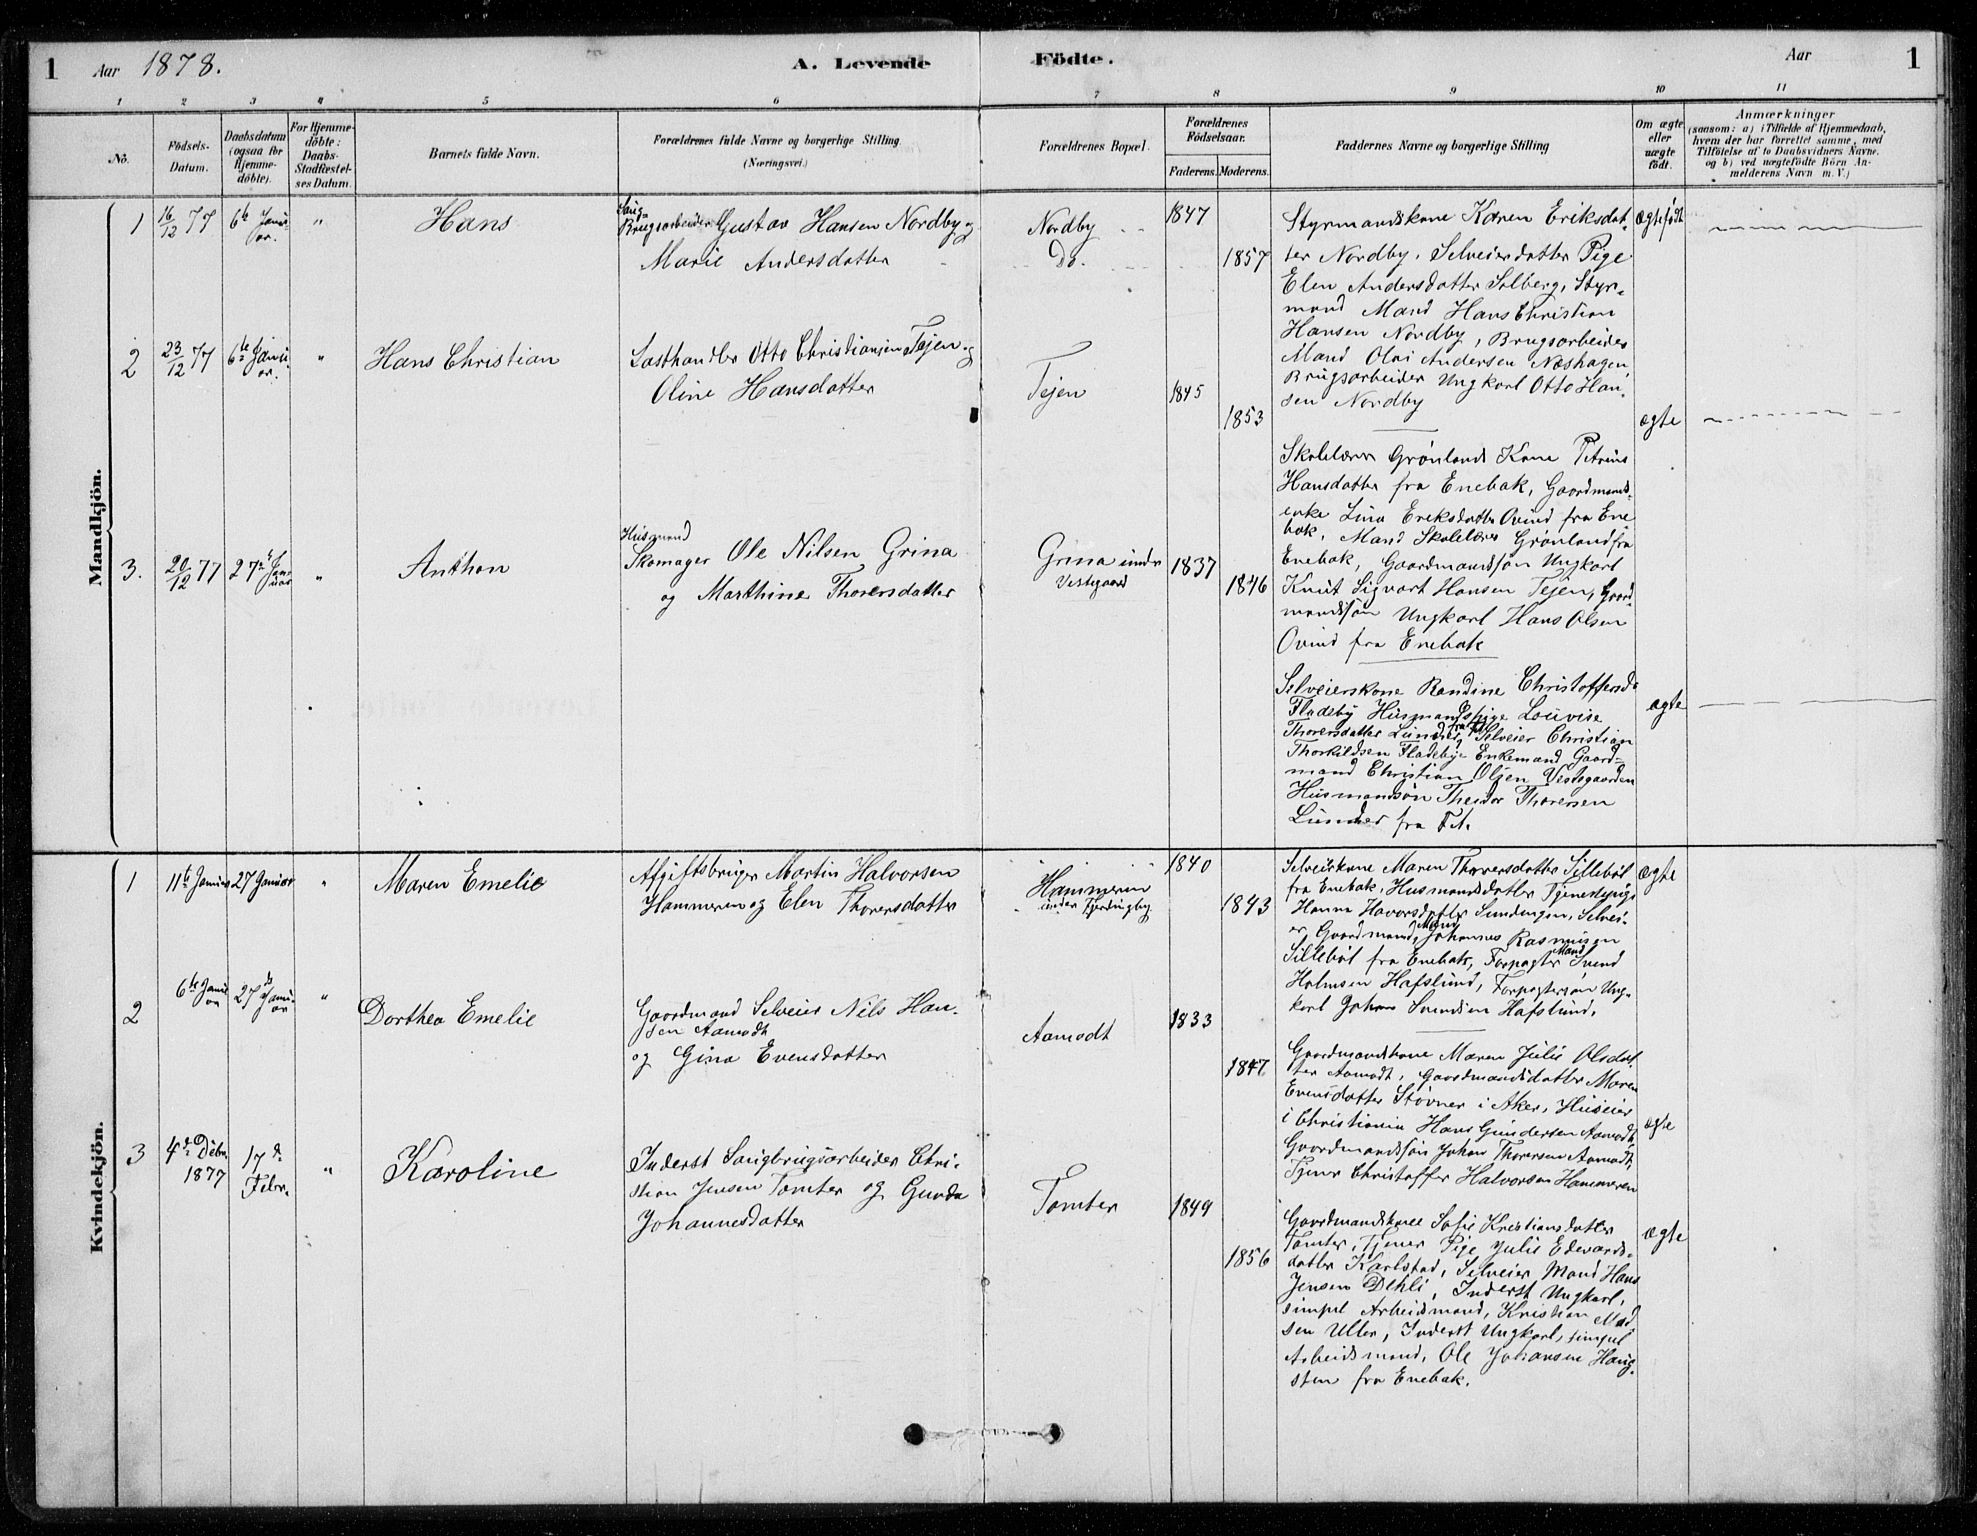 1 Aar 1878. A. Levende Födte. Aar 1
1 2 3 4 5 6 7 8 9 10 11
No.
Födsels-
Datum.
Daabsdatum
(ogsaa for
Hjemme-
döbte).
For Hjemme-
döbte:
Daabs-
Stadfæstel-
ses Datum.
Barnets fulde Navn.
Forældrenes fulde Navne og borgerlige Stilling
(Næringsvei.)
Forældrenes Bopæl.
Forældrenes
Födselsaar.
Faderens. Moderens.
Faddernes Navne og borgerlige Stilling
Om ægte
eller
uægte
födt.
Anmærkninger
(saasom: a) i Tilfælde af Hjemmedaab,
hvem der har forrettet samme, med
Tilföielse af to Daabsvidners Navne.
og b) ved uægtefödte Börn An-
melderens Navn m. V.)
Mandkjön.
1 16/12 77 6te Janu-
ar. " Hans
Saug-
Brugsarbeider Gustav Hansen Nordby og
Marie Andersdatter
Nordby
Do.
1847
1857
Styrmandskone Karen Eriksdat-
ter Nordby, Selveierdatter Pige
Elen Andersdatter Solberg, Styr-
mand Mand Hans Christian
Hansen Nordby, Brugsarbeider
Mand Olai Andersen Næshagen,
Brugsarbeider Ungkarl Otto Han-
sen Nordby
ægtefødt
2 23/12 77 6te Janu-
ar. " Hans Christian
Lasthandler Otto Christiansen Tejen og
Oline Hansdatter
Tejen
1845
1853
Skolelærer Grønlands Kone Petrine
Hansdatter fra Enebak, Gaardmands-
enke Lina Eriksdatter Ovind fra Ene
bak, Mand Skolelærer Grønland fra
Enebak, Gaardmandsøn Ungkarl
Knut Sigvart Hansen Tejen, Gaard-
mandsøn Ungkarl Hans Olsen
Ovind fra Enebak
ægte
3. 20/12 77 27de Jan-
uar " Anthon
Husmand
Skomager Ole Nilsen Grina
og Marthine Thorersdatter
Grina under
Vestgaard
1837
1846
Selveierskone Randine Christoffersd.
Fladeby Husmandspige Louvise
Thorersdatter Lunder, Selveier Christian
Thorkildsen Fladeby, Enkemand Gaard-
mand Christian Olsen Vestgaarden
Husmandsøn Theodor Thorersen
Lunder fra Fet.
ægte
Kvindekjön.
1 11te Januar 27 Januar " Maren Emelie
Afgiftsbruger Martin Halvorsen
Hammeren og Elen Thorersdatter
Hammeren
under Tjerdingby
1840
1843
Selveierkone Maren Thorersdatter Sillebøl
fra Enebak, Husmandsdatter Tjenestepige
Hanna Havorsdatter Sundengen, Selvei-
er Gaardmand, Mand Johannes Rasmusen
Sillebøl fra Enebak, Forpagter Mand Svend
Holmsen Hafslund, Forpagtersøn Ung-
karl Johan Svendsen Hafslund.
ægte
2 6te Janu
ar 27de Janu-
ar " Dorthea Emelie
Gaardmand Selveier Nils Han-
sen Aamodt
og Gina Evensdatter
Aamodt
1833
1847
Gaardmandskone Maren Julie Olsdat-
ter Aamodt, Gaardmandsdatter Maren
Evensdatter Støvner i Aker, Huseier
i Christiania Hans Gundersen Aamodt,
Gaardmandsøn Johan Thorersen Aamodt,
Tjener Christoffer Halvorsen Hammeren
ægte
3 4de Debr.
1877 17de
Febr. " Karoline
Inderst Saugbrugsarbeider Chri-
stian Jensen Tomter og Gunda
Johannesdatter
Tomter
1849
1856
Gaardmandskone Sofie Kristiansdatter
Tomter, Tjener Pige Julie Edevards-
datter Karlstad, Selveier Mand Hans
Jensen Dehli, Inderst Ungkarl,
simpel Arbeidsmand, Kristian Mad-
sen Uller, Inderst Ungkarl, simpel
Arbeidsmand, Ole Johansen Haug-
sten fra Enebak.
ægte